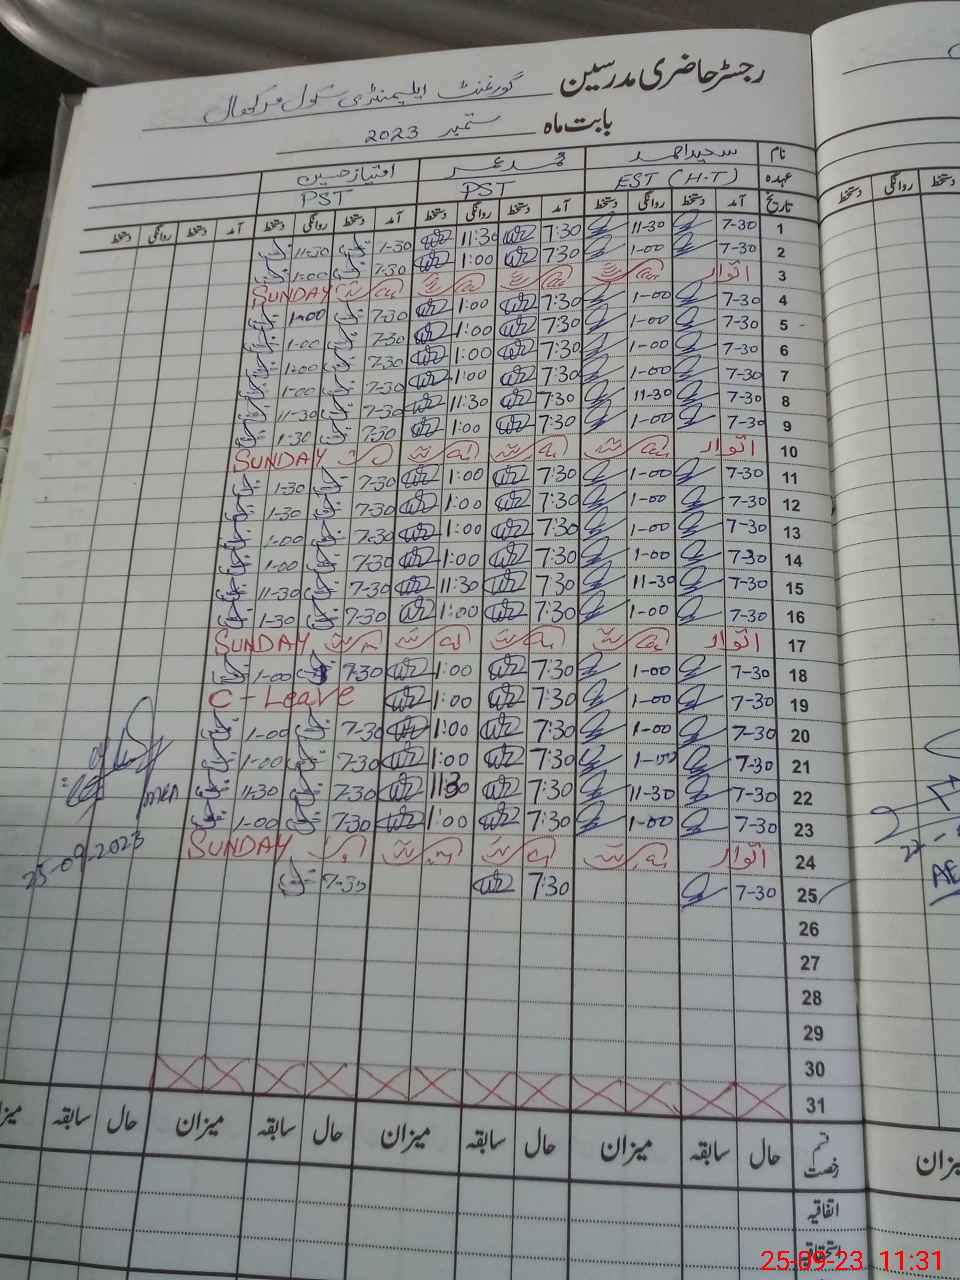 رجسٹر حاضری مدرسین گورنمنٹ ایلیمنٹری سکول
بابت ماہ ستمبر 2023
نام سعید احمد محمد عمر امتیاز حسین
عہدہ EST (H.T) PST PST
تاریخ آمد دستخط روانگی دستخط آمد دستخط روانگی دستخط آمد دستخط روانگی دستخط آمد دستخط روانگی دستخط
1 7-30 11-30 7:30 11:30 1-30 11-30
2 7-30 1-00 7:30 1:00 7-30 1-00
3 اتوار SUNDAY
4 7-30 1-00 7:30 1:00 7-30 1-00
5 7-30 1-00 7:30 1:00 7-30 1-00
6 7-30 1-00 7:30 1:00 7-30 1-00
7 7-30 1-00 7:30 1:00 7-30 1-00
8 7-30 11-30 7:30 11:30 7-30 11-30
9 7-30 1-00 7:30 1:00 7-30 1-30
10 اتوار SUNDAY
11 7-30 1-00 7:30 1:00 7-30 1-30
12 7-30 1-00 7:30 1:00 7-30 1-30
13 7-30 1-00 7:30 1:00 7-30 1-00
14 7-30 1-00 7:30 1:00 7-30 1-00
15 7-30 11-30 7:30 11:30 7-30 11-30
16 7-30 1-00 7:30 1:00 7-30 1-30
17 اتوار SUNDAY
18 7-30 1-00 7:30 1:00 7-30 1-00
19 7-30 1-00 7:30 1:00 C-Leave
20 7-30 1-00 7:30 1:00 7-30 1-00
21 7-30 1-00 7:30 1:00 7-30 1-00
22 7-30 11-30 7:30 11:30 7-30 11-30
23 7-30 1-00 7:30 1:00 7-30 1-00
24 اتوار SUNDAY
25 7-30 7:30 7-30
MEA
25-09-2023
26
27
28
29
30
31
قسم رخصت حال سابقہ میزان حال سابقہ میزان حال سابقہ میزان حال سابقہ
اتفاقیہ
استحقاقی
دستخط روانگی دستخط
AE
میزان
25-09-23 11:31